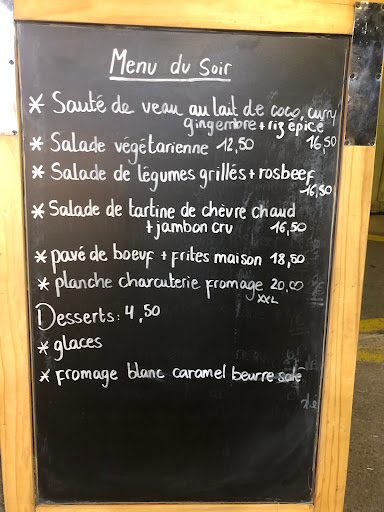 Menu du Soir
* Sauté de veau au lait de coco, curry
gingembre + riz épicé
* Salade végétarienne 12,50 16,50
* Salade de légumes grillés + rosbeef
16,50
* Salade de tartine de chèvre chaud
+ jambon cru 16,50
* pavé de boeuf + frites maison 18,50
* planche charcuterie fromage 20,00
XXL
Desserts: 4,50
* glaces
* fromage blanc caramel beurre salé